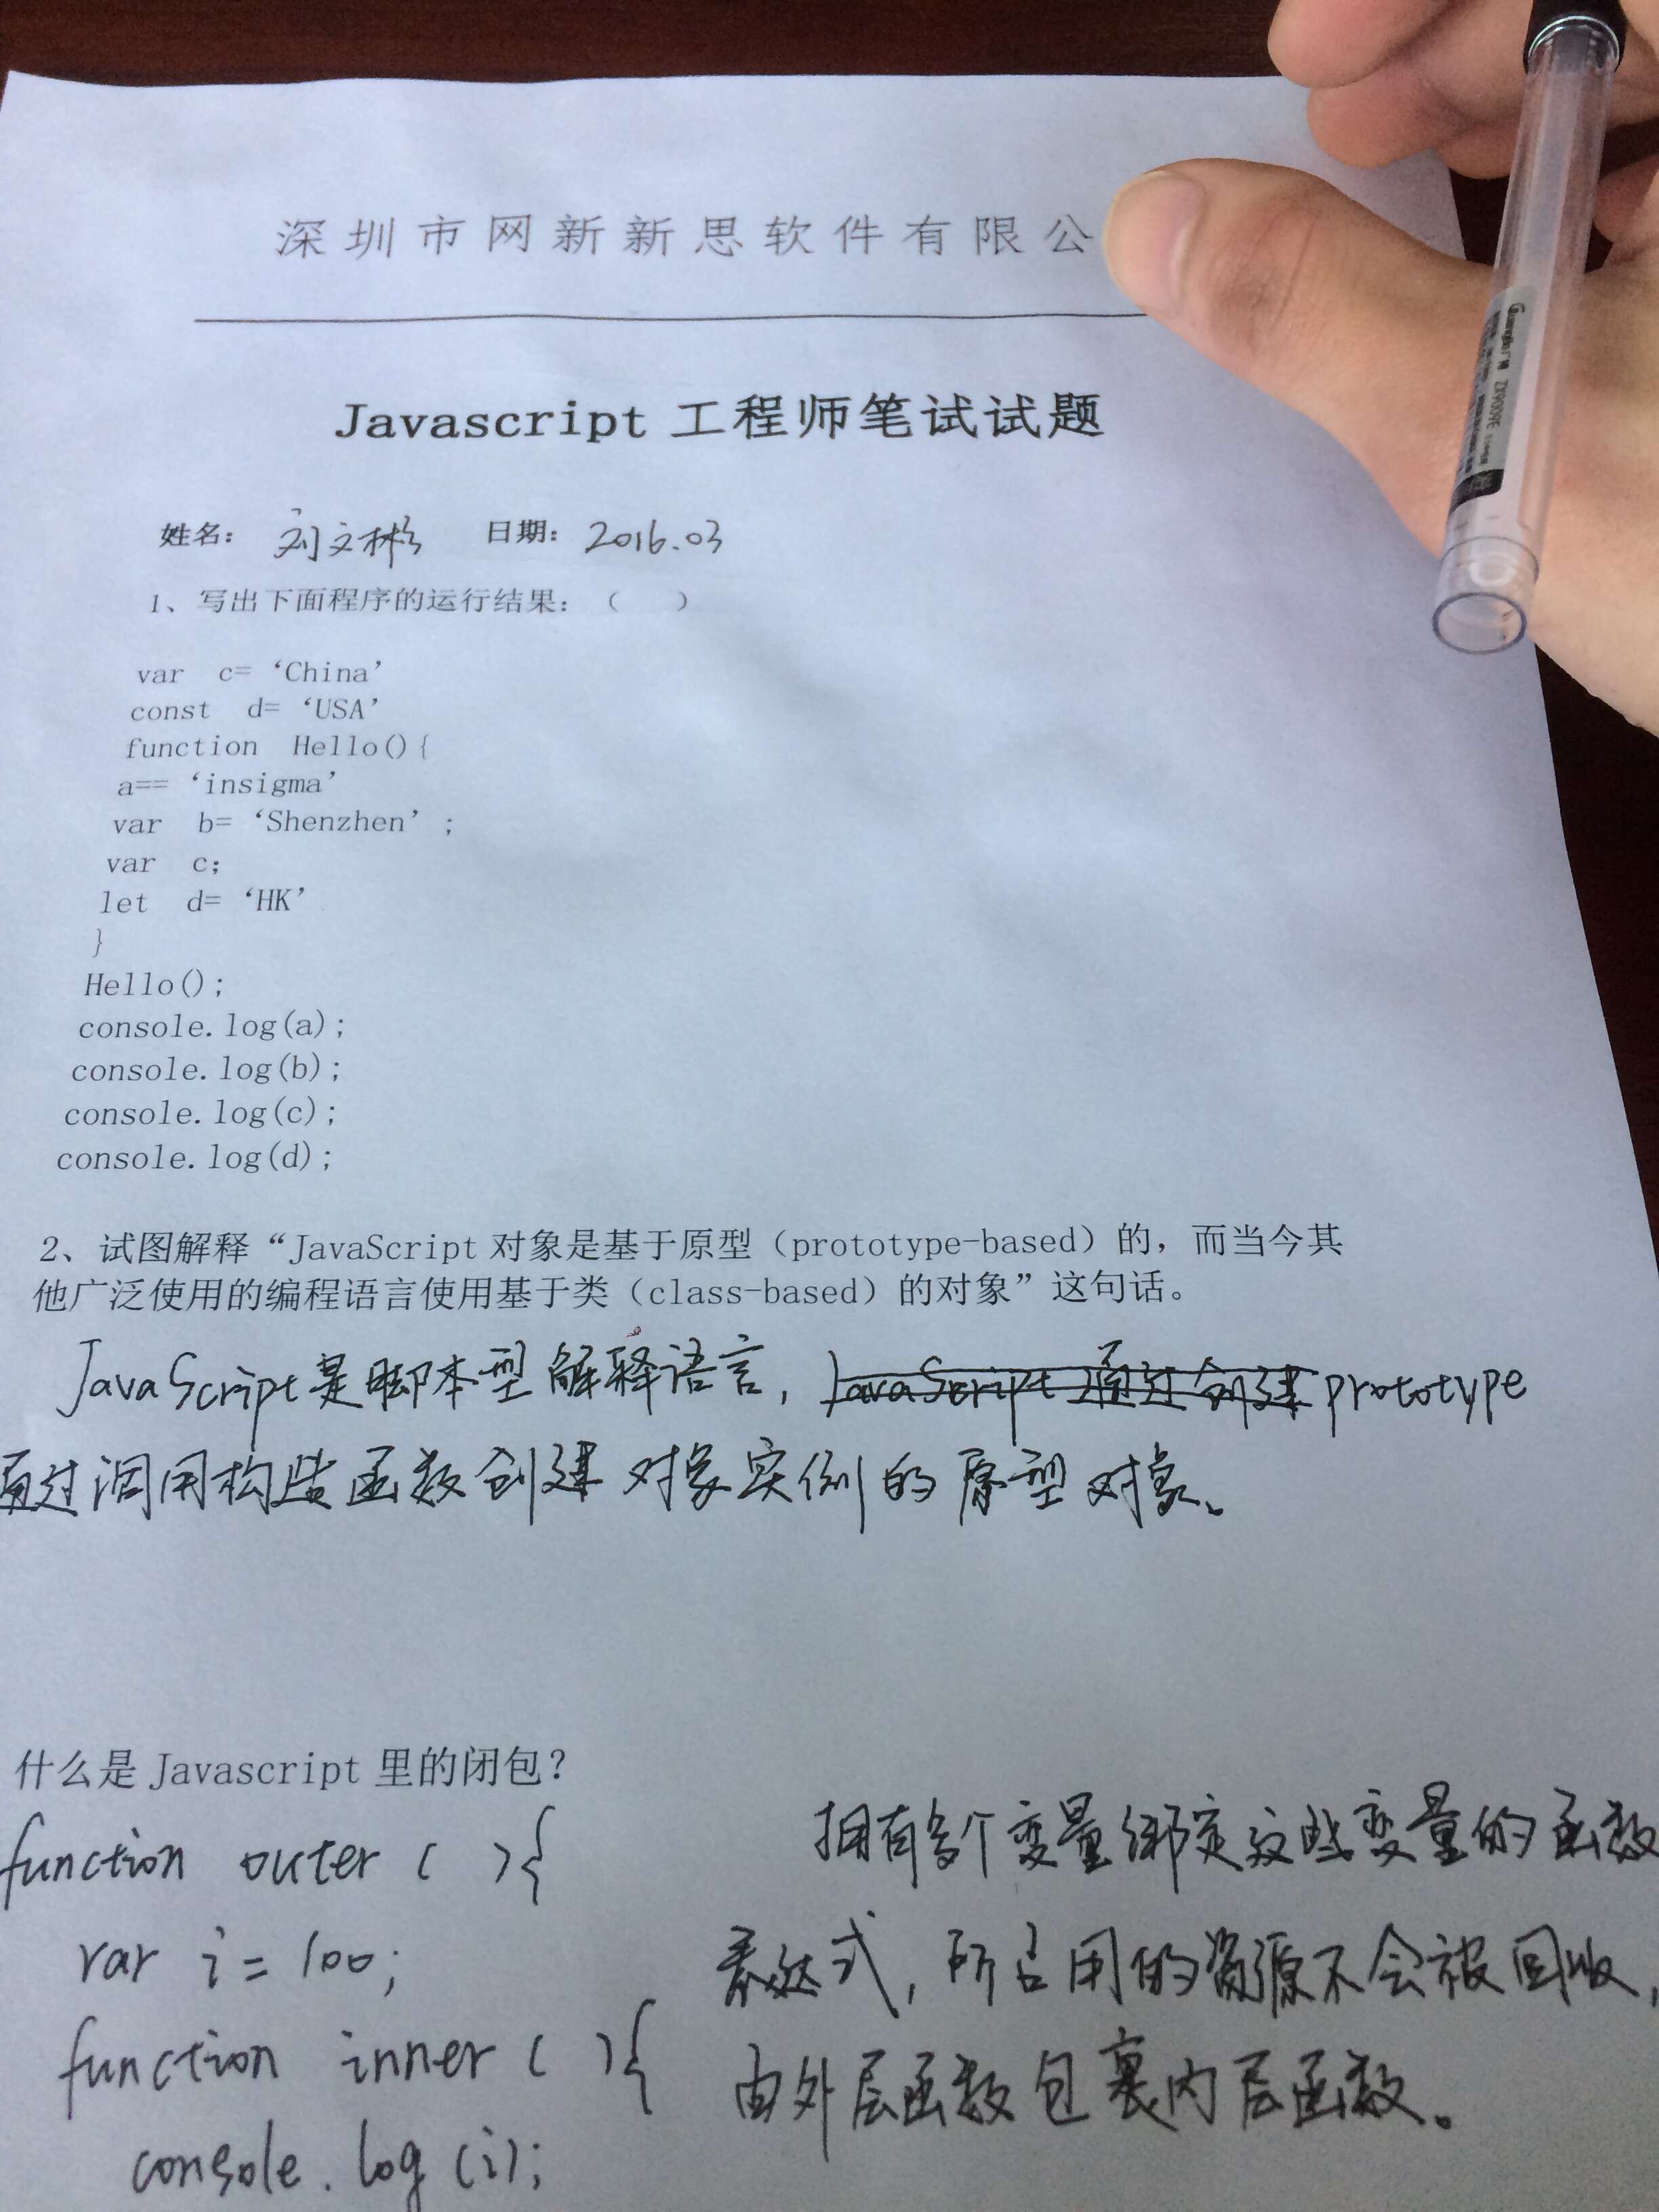 深圳市网新新思软件有限公
Javascript 工程师笔试试题
姓名： 刘文彬 日期： 2016.03
1、写出下面程序的运行结果：（ ）
var c= ‘China’
const d= ‘USA’
function Hello(){
a== ‘insigma’
var b= ‘Shenzhen’ ;
var c;
let d= ‘HK’
}
Hello();
console.log(a);
console.log(b);
console.log(c);
console.log(d);
2、试图解释“JavaScript 对象是基于原型（prototype-based）的，而当今其
他广泛使用的编程语言使用基于类（class-based）的对象”这句话。
JavaScript是脚本型解释语言，JavaScript 通过创建prototype
通过调用构造函数创建对象实例的原型对象。
什么是 Javascript 里的闭包？
function outer ( ){
var i = 100;
function inner ( ){
console.log (i);
拥有多个变量绑定这些变量的函数
表达式，所占用的资源不会被回收，
由外层函数包裹内层函数。